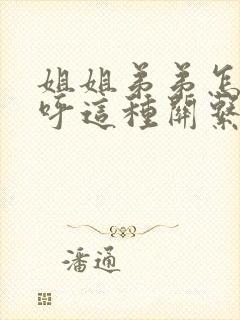 姐姐弟弟怎
呼這種關繫
潘通